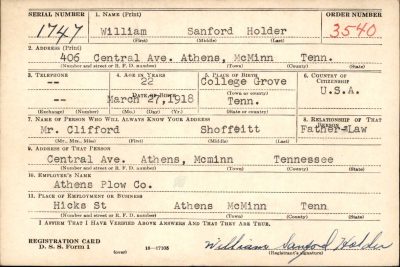 SERIAL NUMBER 1. NAME (Print) ORDER NUMBER
1747 William Sanford Holder 3540
(First) (Middle) (Last)
2. ADDRESS (Print)
406 Central Ave. Athens, McMinn Tenn.
(Number and street or R. F. D. number) (Town) (County) (State)
3. TELEPHONE 4. AGE IN YEARS 5. PLACE OF BIRTH 6. COUNTRY OF CITIZENSHIP
-- 22 College Grove
DATE OF BIRTH (Town or county) U.S.A.
-- March 27, 1918 Tenn.
(Exchange) (Number) (Mo.) (Day) (Yr.) (State or country)
7. NAME OF PERSON WHO WILL ALWAYS KNOW YOUR ADDRESS 8. RELATIONSHIP OF THAT PERSON
Mr. Clifford Shoffeitt Father-Law
(Mr., Mrs., Miss) (First) (Middle) (Last)
9. ADDRESS OF THAT PERSON
Central Ave. Athens, Mcminn Tennessee
(Number and street or R. F. D. number) (Town) (County) (State)
10. EMPLOYER'S NAME
Athens Plow Co.
11. PLACE OF EMPLOYMENT OR BUSINESS
Hicks St Athens McMinn Tenn
(Number and street or R. F. D. number) (Town) (County) (State)
I AFFIRM THAT I HAVE VERIFIED ABOVE ANSWERS AND THAT THEY ARE TRUE.
REGISTRATION CARD
D. S. S. Form 1 (over) 16—17105 William Sanford Holder
(Registrant's signature)